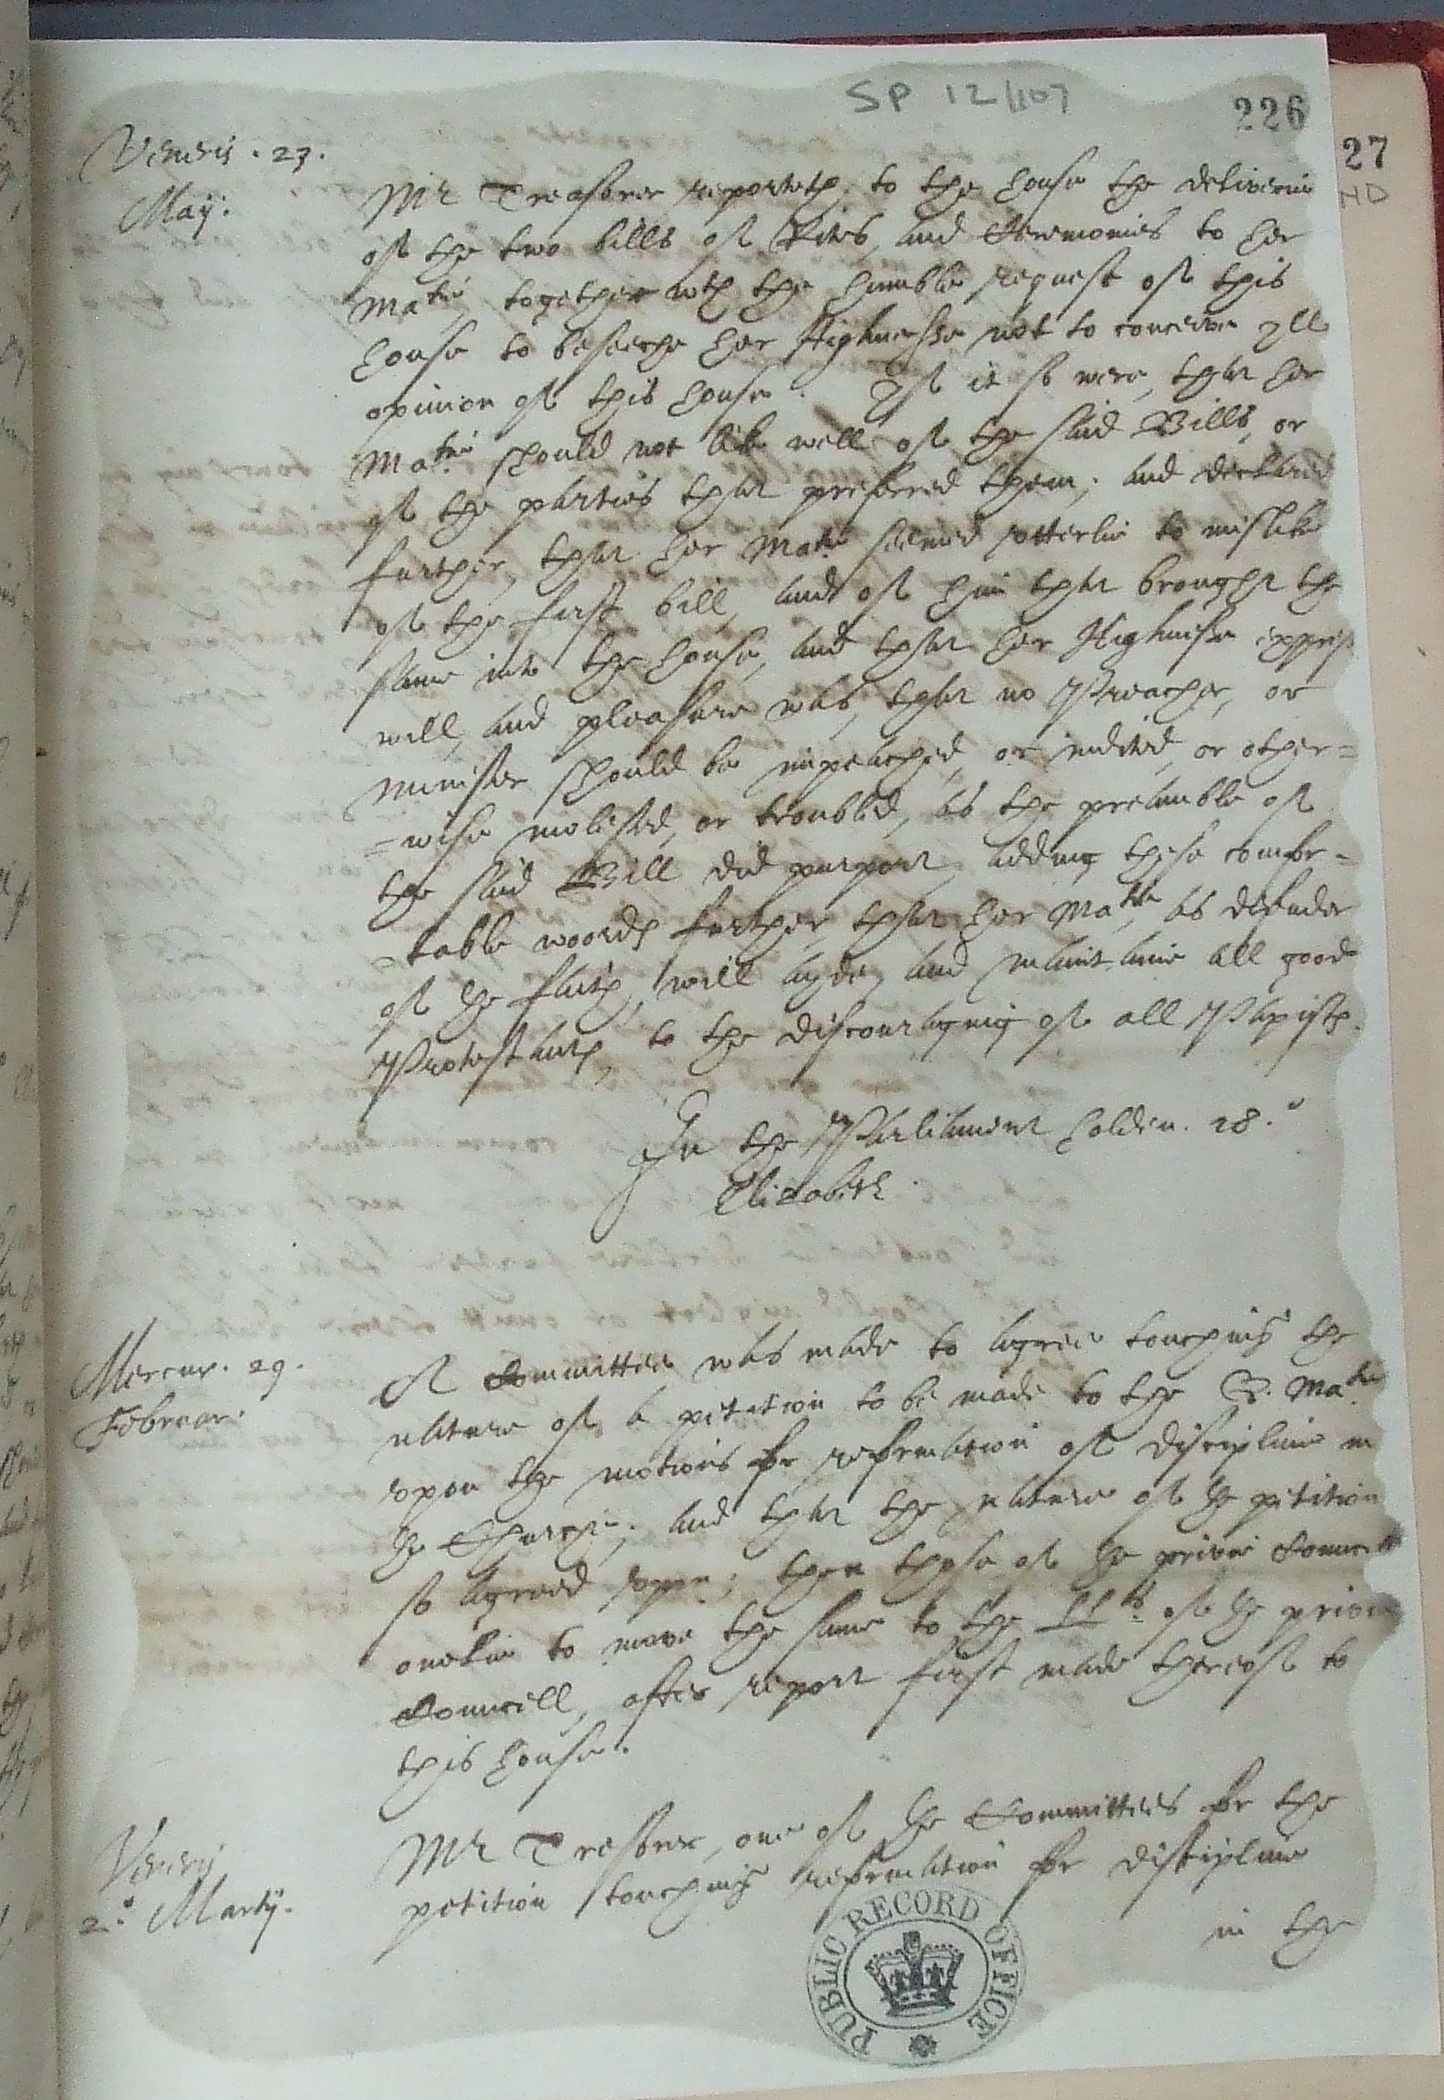 SP 12/107
226
27
Veneris . 23.
May:
Mr Treasorer reporteth to the house the deliverie
of the two bills of Rites, and Ceremonies to her
Matie, together wth the humble request of this
house to beseeche her Highnesse not to conceive yll
opinion of this house. Yf it so were, that her
Matie should not like well of the said Bills, or
of the parties that preferred them; and declared
further, that her Matie seemed vtterlie to mislike
of the first bill, and of him that brought the
same into the house, and that her Highnesse expresse
will and pleasure was, that no Preacher, or
Minister should be impeached or indited, or other=
=wise molested, or troubled, as the preamble of
the said Bill did purport, adding these comfor-
-table woordes further, that her Matie, as defender
of the faith, will ayde, and maintaine all good
Protestants, to the discouraging of all Papists.
In the Parliament holden. 28.o
Elizabeth.
Mercur. 29.
Februar:
A Committee was made to agree touching the
nature of a petition to be made to the Q. Matie
vpon the motions for reformation of discipline in
the Church; and that the nature of the petition
so agreed vpon; then those of the privie Councell
onelie to move the same to the LLs. of the privie
Councell, after report first made thereof to
this house.
Veneris
2.o Martij.
Mr Tresorer, one of the Committees for the
petition touching reformation for discipline
in the
PUBLIC RECORD OFFICE